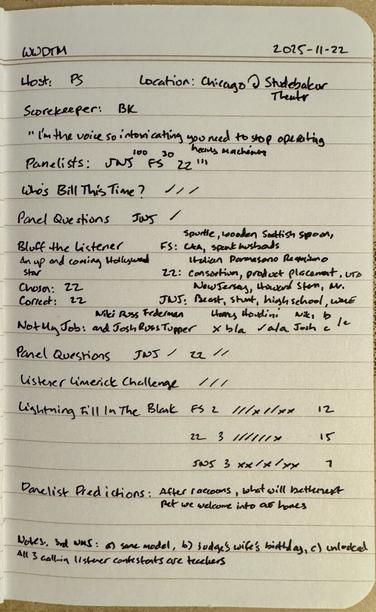 WWDTM 2025-11-22
Host: PS Location: Chicago @ Studebaker
Theater
Scorekeeper: BK
"I'm the voice so intoxicating you need to stop operating
heavy machinery
Panelists: JNJ 100 FS 30 ZZ "'
Who's Bill This Time? / / /
Panel Questions JNJ /
Spurtle, wooden Scottish spoon,
Bluff the Listener FS: CIA, spent husbands
An up and coming Hollywood Italian Parmesano Reggiano
star ZZ: Consortium, product placement, UTA
Chosen: ZZ New Jersey, Howard Stern, Mr.
Correct: ZZ JNJ: Beast, stunt, high school,
Niki Russ Federman Harry Houdini Niki b
Not My Job: and Josh Russ Tupper x b/a ✓ a/a Josh c /c
Panel Questions JNJ / ZZ //
Listener Limerick Challenge / / /
Lightning Fill In The Blank FS 2 ///x//xx 12
ZZ 3 //////x 15
JNJ 3 xx/x/xx 7
Panelist Predictions: After raccoons, what will be the next
pet we welcome into our homes
Notes: 3rd NMJ: a) same model, b) Judge's wife's birthday, c) unlocked
All 3 call-in listener contestants are teachers